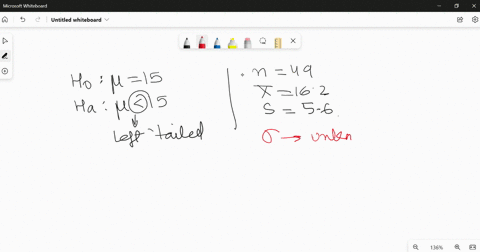 Microsoft Whiteboard
Untitled whiteboard
H0: μ = 15
Ha: μ < 15
Left-tailed
n = 49
x̄ = 16.2
S = 5.6
σ → unkn
136%